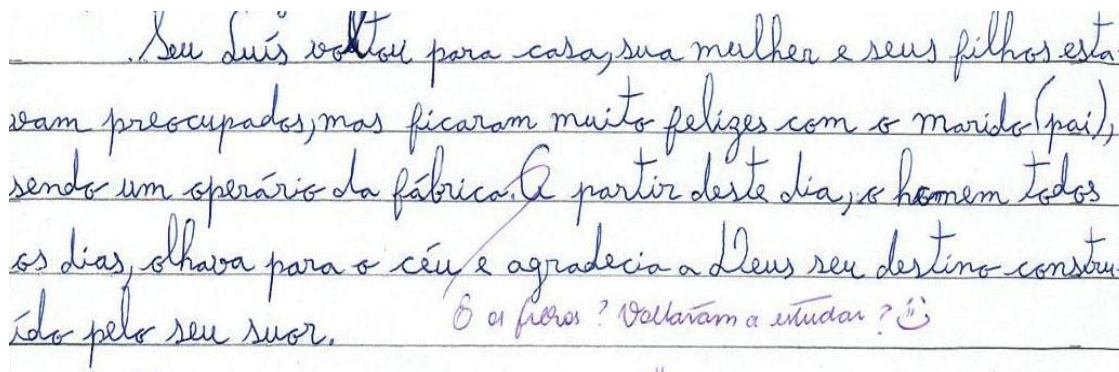 Seu Luís voltou para casa, sua mulher e seus filhos esta
vam preocupados, mas ficaram muito felizes com o marido (pai),
sendo um operário da fábrica. A partir deste dia, o homem todos
os dias, olhava para o céu e agradecia a Deus seu destino constru-
ído pelo seu suor.
E os filhos? Voltaram a estudar?